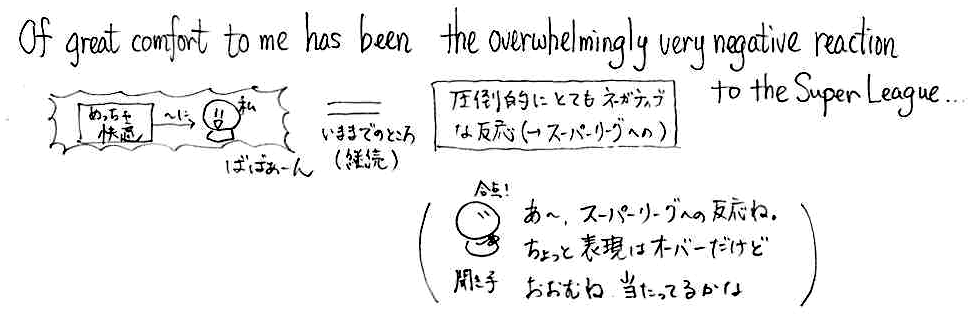 Of great comfort to me has been the overwhelmingly very negative reaction
to the Super League...
めっちゃ
快適
〜に
私
ばばぁーん
いままでのところ
(継続)
圧倒的に とても ネガティブ
な反応 (→スーパーリーグへの)
合点!
聞き手
あ〜、スーパーリーグへの反応ね。
ちょっと表現はオーバーだけど
おおむね 当たってるかな